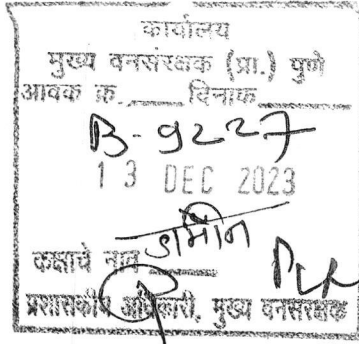 कार्यालय
मुख्य वनसंरक्षक (प्रा.) पुणे
आवक क्र. दिनांक
B-9227
13 DEC 2023
कक्षाचे नाव
प्रशासकीय अधिकारी, मुख्य वनसंरक्षक